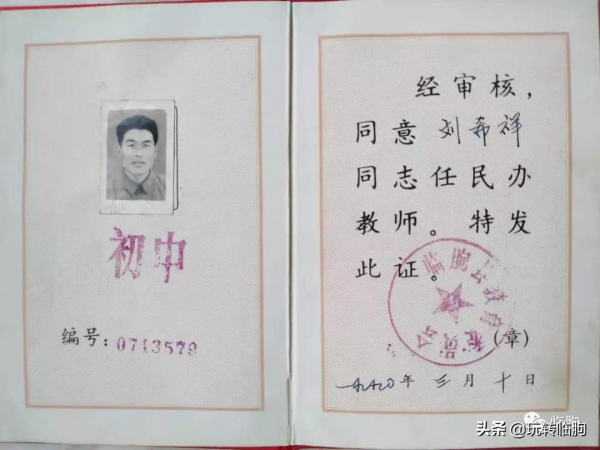 初中
编号：0713579
经审核，
同意刘希祥
同志任民办
教师。特发
此证。
临朐县教育委员会
(章)
一九九〇年三月十日
临朐
头条 @玩转临朐